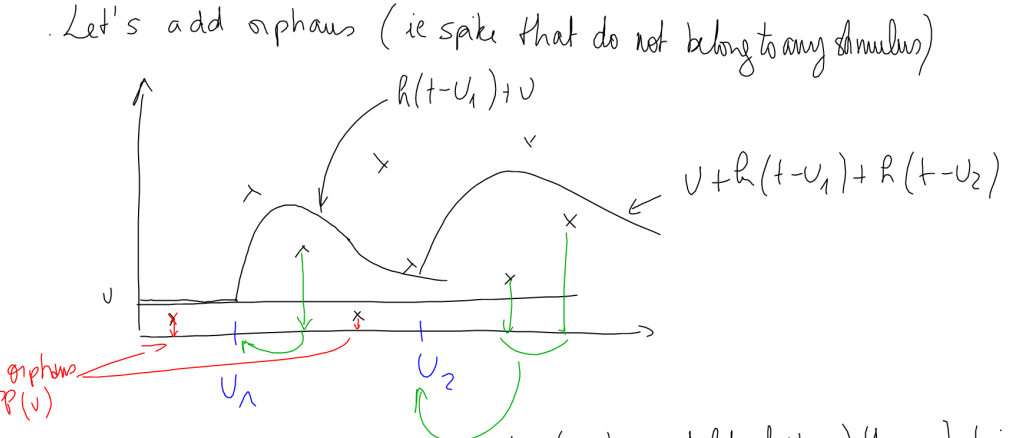 . Let's add orphans (ie spike that do not belong to any stimulus)
h(t-U₁)+ν
ν+h(t-U₁)+h(t-U₂)
ν
orphans
P(ν)
U₁
U₂